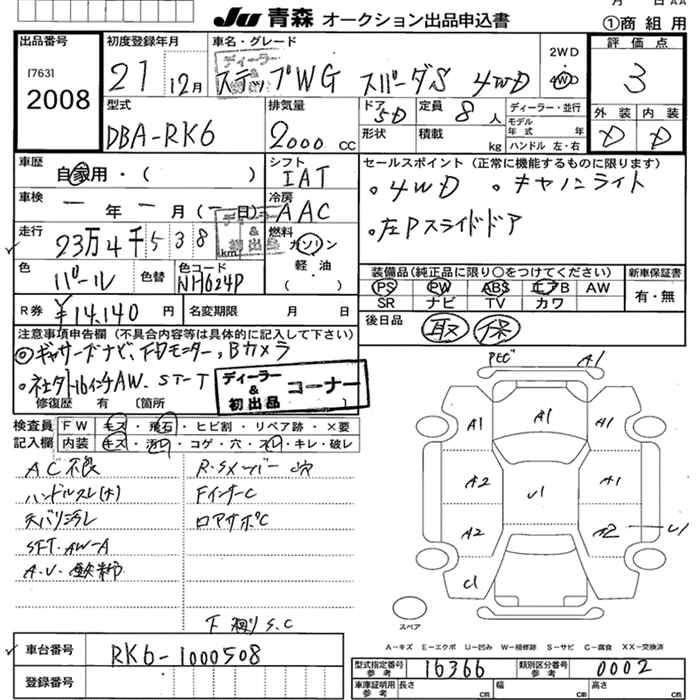 JU 青森 オークション出品申込書
①商 組 用
出品番号
17631
2008
初度登録年月
21 12月
車名・グレード
ステップWG スパーダS 4WD
ディーラー & 初出品
2WD
4WD
評価点
3
外装 内装
D D
型式
DBA-RK6
排気量
2000 cc
ドア
5D
形状
定員 8 人
積載 kg
ディーラー・並行
モデル 年式 年
ハンドル 左・右
車歴
自家用・( )
シフト
IAT
セールスポイント (正常に機能するものに限ります)
・4WD ・キャノンライト
・左Pスライドドア
車検
ー 年 ー 月 (ー 日)
冷房
AAC
走行
23万4千538 km
ディーラー & 初出品
燃料
ガソリン
軽油
( )
色
パール
色替
色コード
NH624P
装備品 (純正品に限り○をつけてください)
新車保証書
PS PW ABS エアB AW
SR ナビ TV カワ
有・無
R券 ¥14,140 円
名変期限 月 日
後日品 取 保
注意事項申告欄 (不具合内容等は具体的に記入して下さい)
ギャザーズナビ、F席モニター、Bカメラ
・社外16インチAW.ST-T
ディーラー & 初出品 コーナー
修復歴 有 〔箇所 〕
検査員 記入欄
FW キズ・飛石・ヒビ割・リペア跡・×要
内装 キズ・汚レ・コゲ・穴・スレ・キレ・破レ
AC不良
ハンドルスレ(大)
天バリ汚レ
SFT.AW-A
FインサーC
ロアサポC
S.C
PモビA1
A1 A1 A1
A2 U1 A2
A2 A2 U1
C1
スペア
A-キズ E-エクボ U-凹み W-補修跡 S-サビ C-腐食 XX-交換済
車台番号 RK6-1000508
登録番号
型式指定番号 参考 16366
類別区分番号 参考 0002
車庫証明用 参考 長さ cm 幅 cm 高さ cm